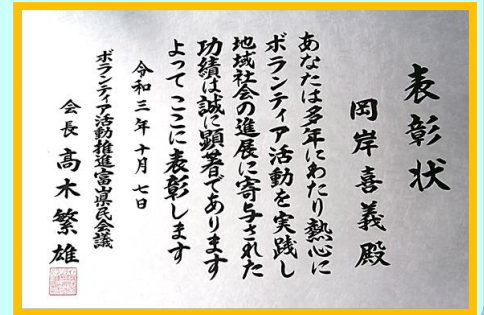 表彰状
岡岸喜義殿
あなたは多年にわたり熱心に
ボランティア活動を実践し
地域社会の進展に寄与された
功績は誠に顕著であります
よってここに表彰します
令和三年十月七日
ボランティア活動推進富山県民会議
会長 高木繁雄